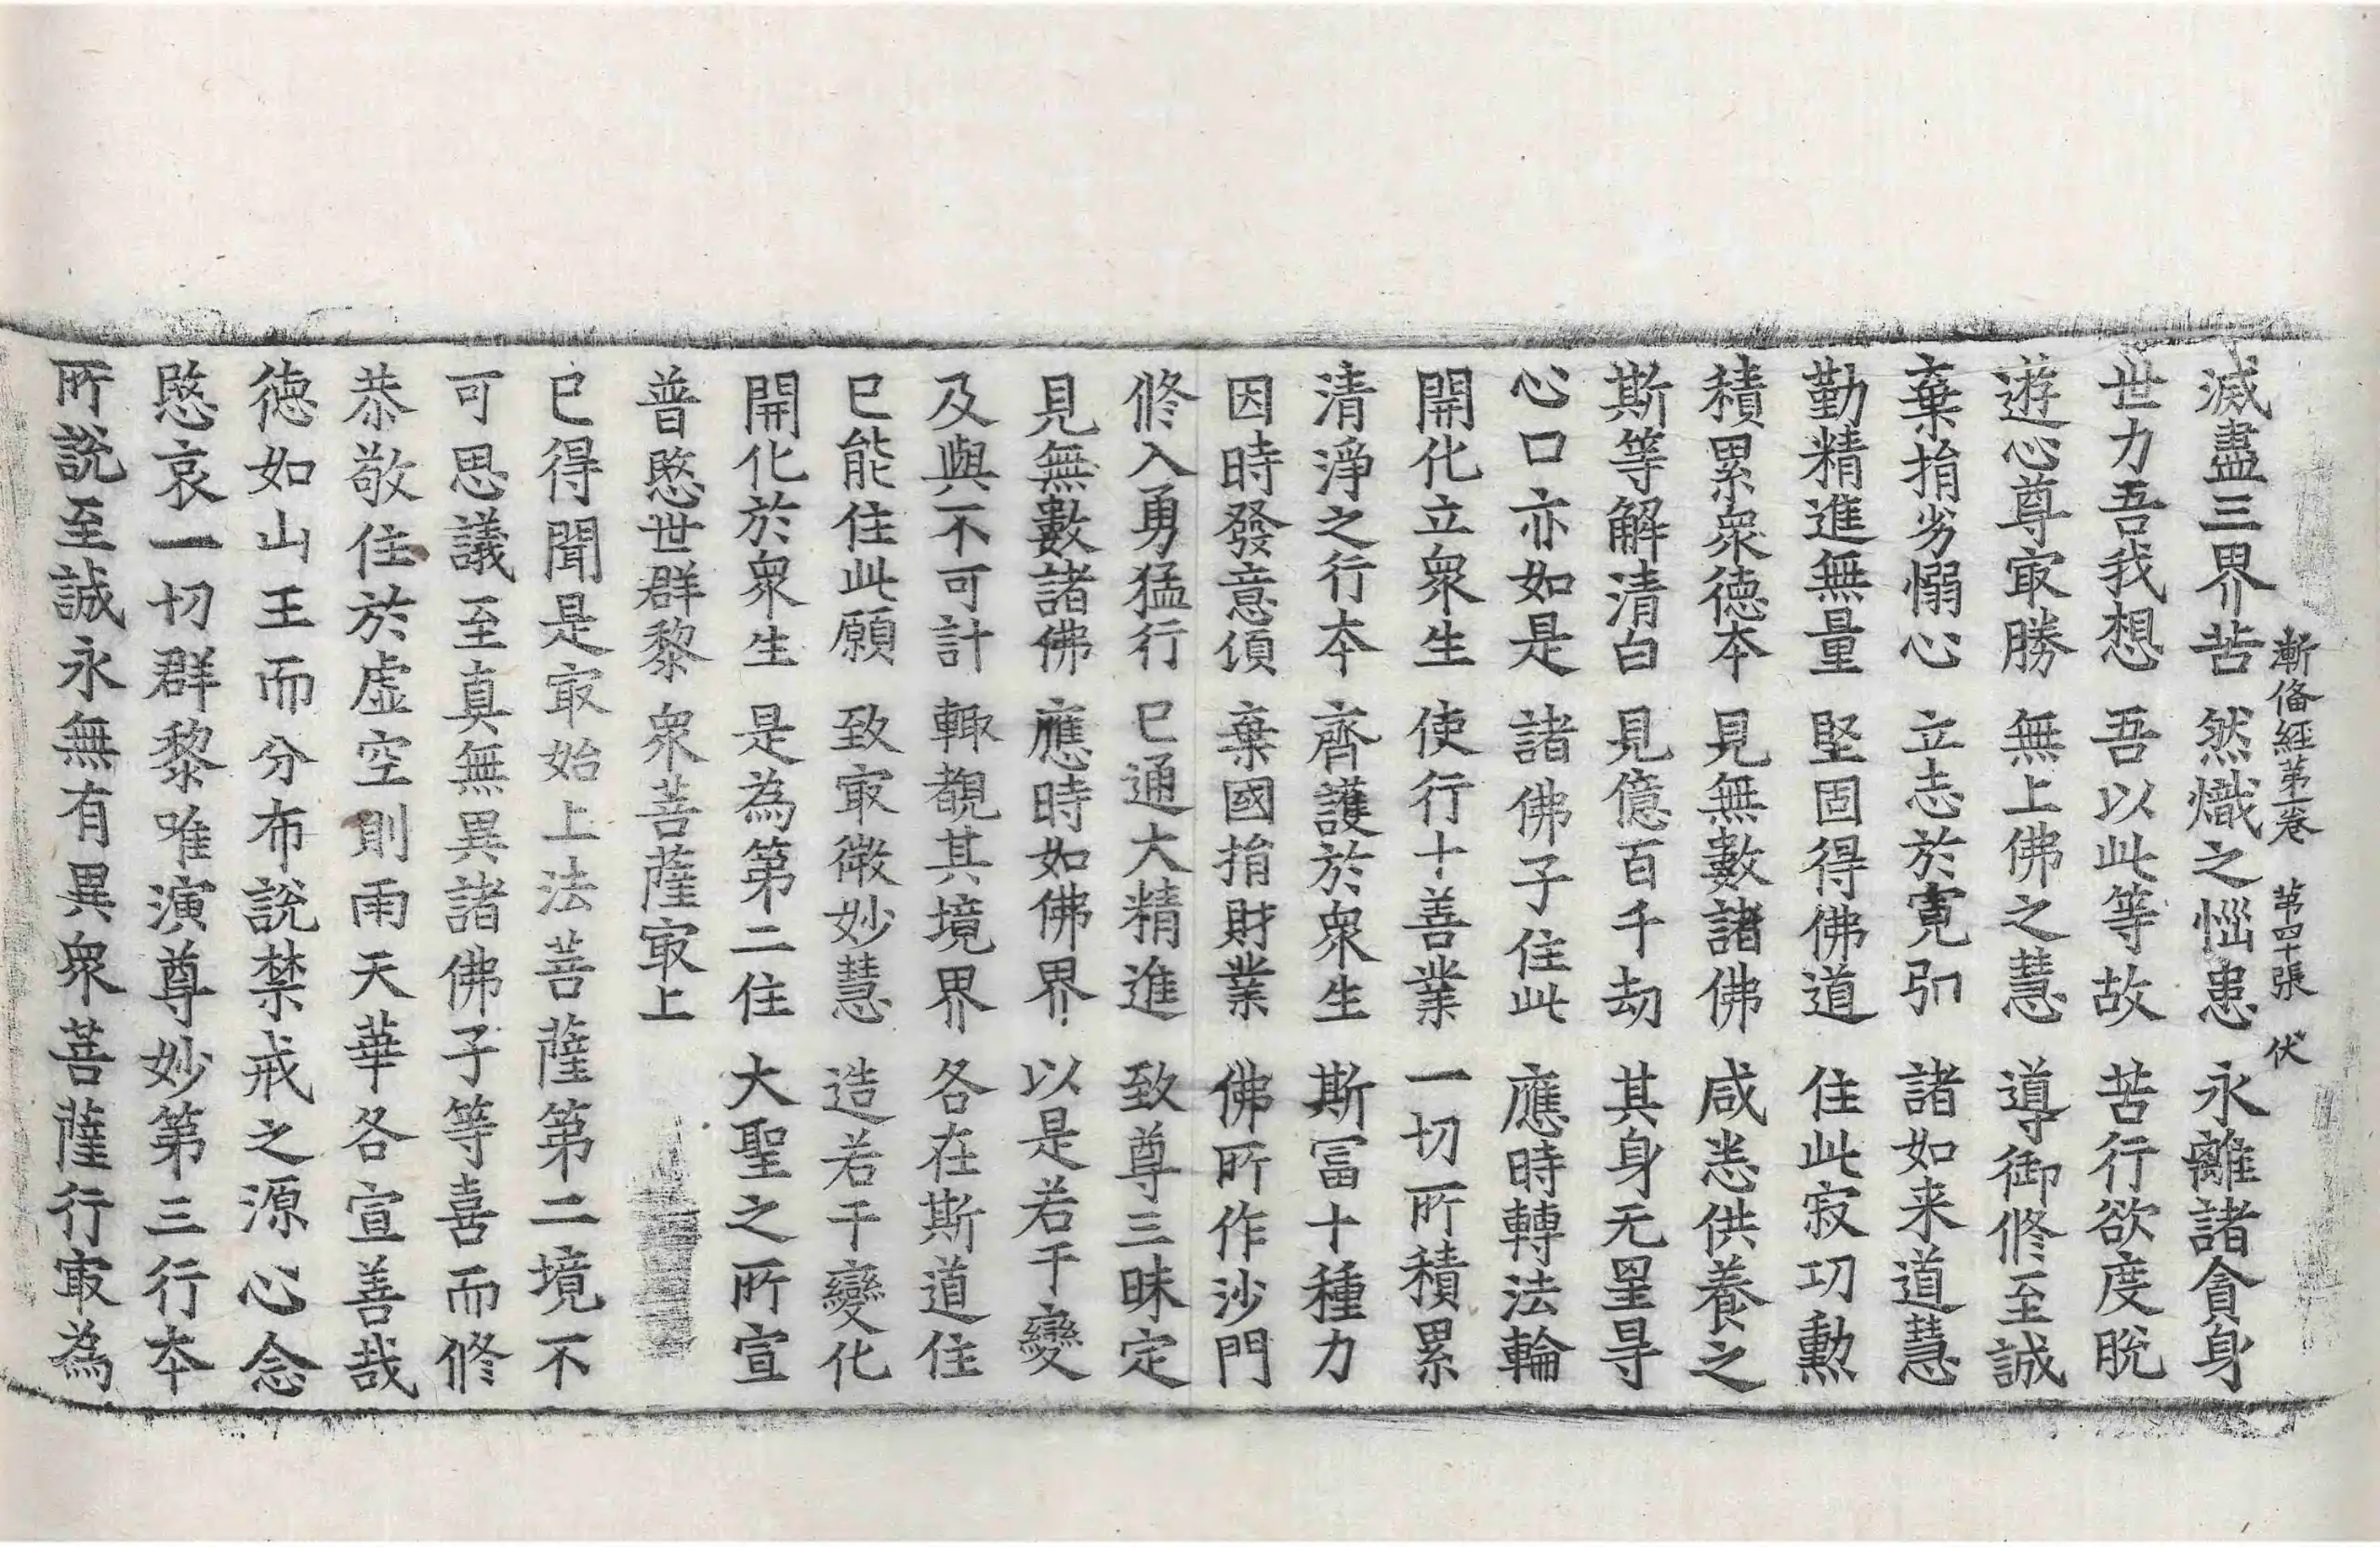 漸偹經第一卷　第四十張　伏
滅盡三界苦　然熾之惱患　永離諸貪身
世力吾我想　吾以此等故　苦行欲度脫
遊心尊㝡勝　無上佛之慧　導御修至誠
棄捐劣懰心　立志於寛弘　諸如来道慧
勤精進無量　堅固得佛道　住此寂功勲
積累衆德本　見無數諸佛　咸悉供養之
斯等解清白　見億百千劫　其身无罣㝵
心口亦如是　諸佛子住此　應時轉法輪
開化立衆生　使行十善業　一切所積累
清淨之行本　齊護於衆生　斯冨十種力
因時發意須　棄國捐財業　佛所作沙門
修入勇猛行　已通大精進　致尊三昧定
見無數諸佛　應時如佛界　以是若干變
及與不可計　輙覩其境界　各在斯道住
已能住此願　致㝡微妙慧　造若干變化
開化於衆生　是為第二住　大聖之所宣
普愍世群黎　衆菩薩㝡上
已得聞是㝡始上法菩薩第二境不
可思議至真無異諸佛子等喜而修
恭敬住於虛空則雨天華各宣善哉
德如山王而分布說禁戒之源心念
愍哀一切群黎唯演尊妙第三行本
所說至誠永無有異衆菩薩行㝡為